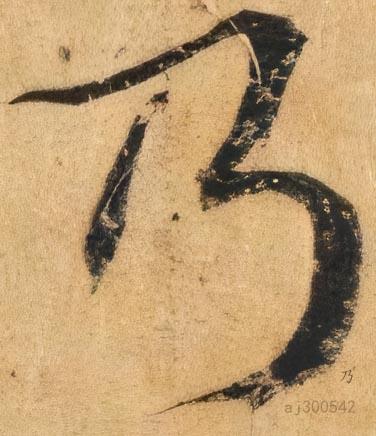 乃
乃
aj300542